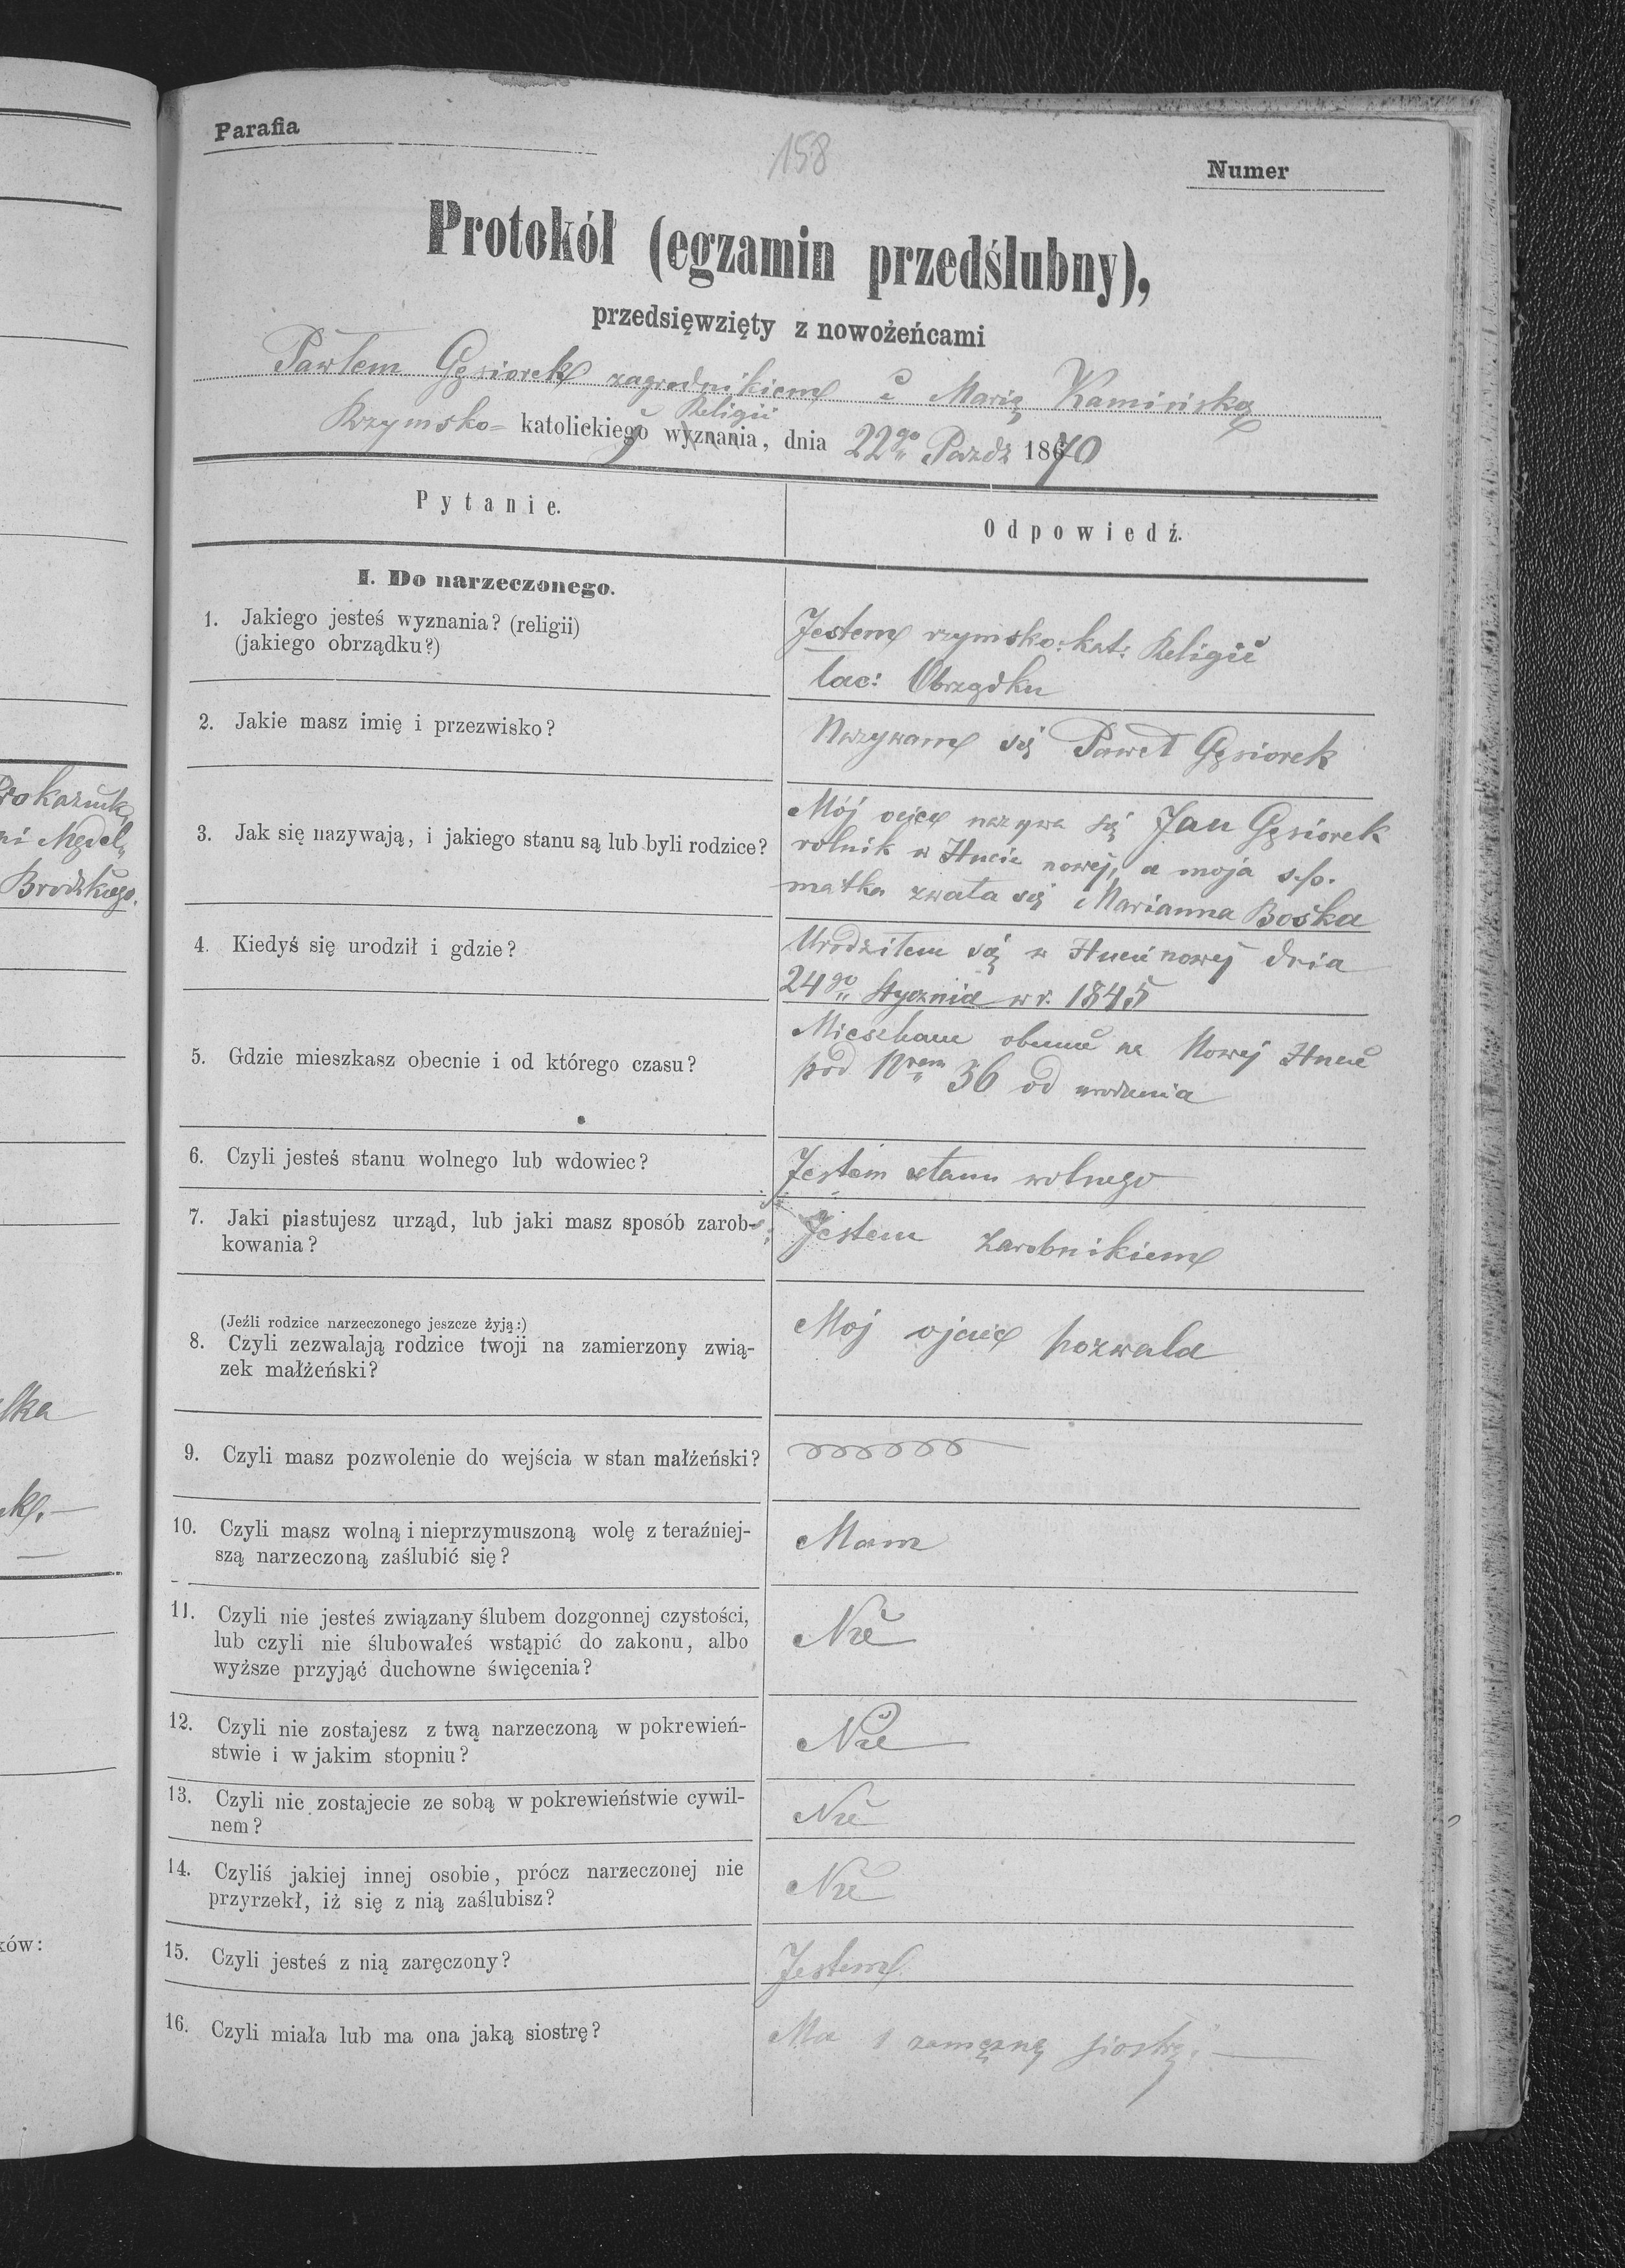 Parafia
158
Numer
Protokół (egzamin przedślubny),
przedsięwzięty z nowożeńcami
Pawłem Gąsiorek zagrodnikiem i Marią Kamińską
Religii
Rzymsko- katolickiego wyznania, dnia 22go Paźdz 1870
Pytanie.
Odpowiedź.
I. Do narzeczonego.
1. Jakiego jesteś wyznania? (religii)
(jakiego obrządku?)
Jestem rzymsko: kat: Religii
łac: Obrządku
2. Jakie masz imię i przezwisko?
Nazywam się Paweł Gąsiorek
3. Jak się nazywają, i jakiego stanu są lub byli rodzice?
Mój ojciec nazywa się Jan Gąsiorek
rolnik w Hucie nowej, a moja s.p.
matka zwała się Marianna Boska
4. Kiedyś się urodził i gdzie?
Urodziłem się w Hucie nowej dnia
24go Stycznia w r. 1845
5. Gdzie mieszkasz obecnie i od którego czasu?
Mieszkam obecnie na Nowej Hucie
pod Nrem 36 od urodzenia
6. Czyli jesteś stanu wolnego lub wdowiec?
Jestem stanu wolnego
7. Jaki piastujesz urząd, lub jaki masz sposób zarob-
kowania?
Jestem zarobnikiem
(Jeźli rodzice narzeczonego jeszcze żyją:)
8. Czyli zezwalają rodzice twoji na zamierzony zwią-
zek małżeński?
Moj ojciec pozwala
9. Czyli masz pozwolenie do wejścia w stan małżeński?
10. Czyli masz wolną i nieprzymuszoną wolę z teraźniej-
szą narzeczoną zaślubić się?
Mam
11. Czyli nie jesteś związany ślubem dozgonnej czystości,
lub czyli nie ślubowałeś wstąpić do zakonu, albo
wyższe przyjąć duchowne święcenia?
Nie
12. Czyli nie zostajesz z twą narzeczoną w pokrewień-
stwie i w jakim stopniu?
Nie
13. Czyli nie zostajecie ze sobą w pokrewieństwie cywil-
nem?
Nie
14. Czyliś jakiej innej osobie, prócz narzeczonej nie
przyrzekł, iż się z nią zaślubisz?
Nie
15. Czyli jesteś z nią zaręczony?
Jestem
16. Czyli miała lub ma ona jaką siostrę?
Ma 1 zamężną siostrę.
Brodzkiego.
ków: